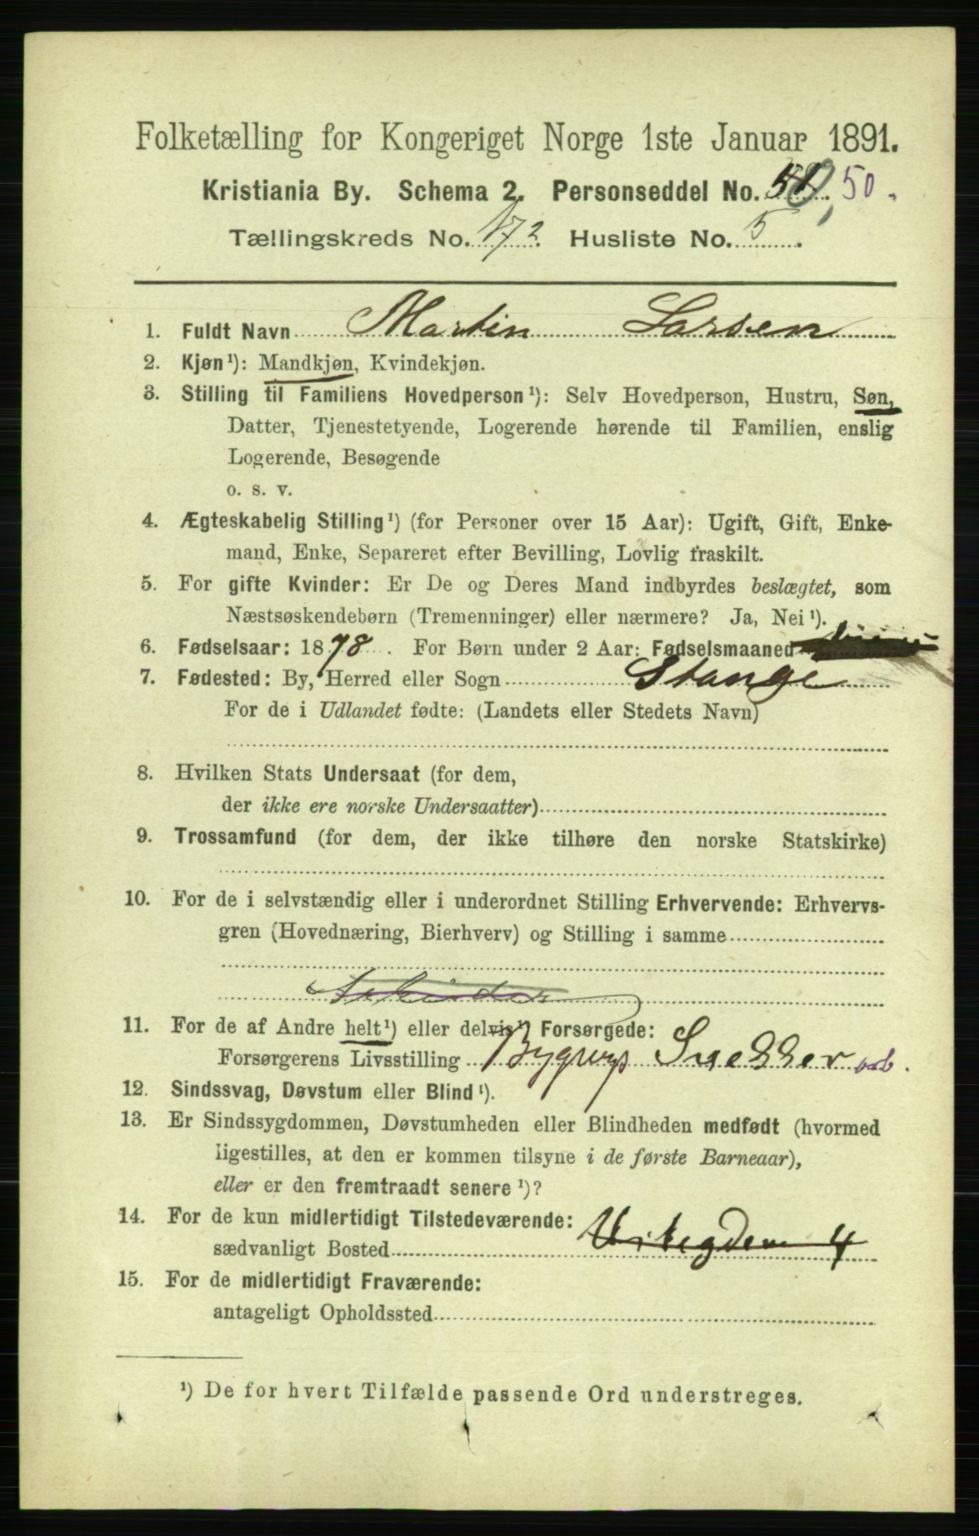 Folketælling for Kongeriget Norge 1ste Januar 1891.
Kristiania By. Schema 2. Personseddel No. 50.
Tællingskreds No. 172. Husliste No. 5.
1. Fuldt Navn Martin Larsen
2. Kjøn¹): Mandkjøn, Kvindekjøn.
3. Stilling til Familiens Hovedperson¹): Selv Hovedperson, Hustru, Søn,
Datter, Tjenestetyende, Logerende hørende til Familien, enslig
Logerende, Besøgende
o. s. v.
4. Ægteskabelig Stilling¹) (for Personer over 15 Aar): Ugift, Gift, Enke-
mand, Enke, Separeret efter Bevilling, Lovlig fraskilt.
5. For gifte Kvinder: Er De og Deres Mand indbyrdes beslægtet, som
Næstsøskendebørn (Tremenninger) eller nærmere? Ja, Nei¹).
6. Fødselsaar: 1878. For Børn under 2 Aar: Fødselsmaaned
7. Fødested: By, Herred eller Sogn Stange
For de i Udlandet fødte: (Landets eller Stedets Navn)
8. Hvilken Stats Undersaat (for dem,
der ikke ere norske Undersaatter)
9. Trossamfund (for dem, der ikke tilhøre den norske Statskirke)
10. For de i selvstændig eller i underordnet Stilling Erhvervende: Erhvervs-
gren (Hovednæring, Bierhverv) og Stilling i samme
Arbeider
11. For de af Andre helt¹) eller delvis¹) Forsørgede:
Forsørgerens Livsstilling Bygnings Snekker arb.
12. Sindssvag, Døvstum eller Blind¹).
13. Er Sindssygdommen, Døvstumheden eller Blindheden medfødt (hvormed
ligestilles, at den er kommen tilsyne i de første Barneaar),
eller er den fremtraadt senere¹)?
14. For de kun midlertidigt Tilstedeværende:
sædvanligt Bosted 4
15. For de midlertidigt Fraværende:
antageligt Opholdssted
¹) De for hvert Tilfælde passende Ord understreges.